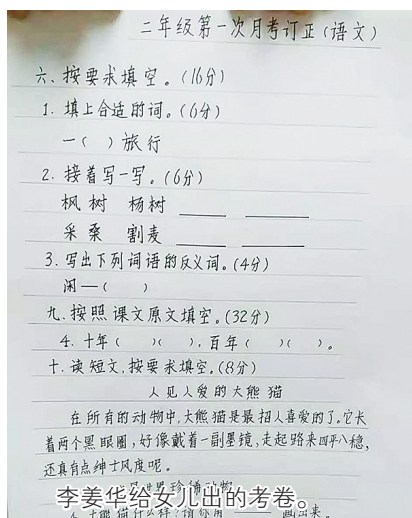 二年级第一次月考订正(语文)
六、按要求填空。(16分)
1. 填上合适的词。(6分)
一( )旅行
2. 接着写一写。(6分)
枫树 杨树 ____ ____
采桑 割麦 ____ ____
3. 写出下列词语的反义词。(4分)
闲—( )
九、按照课文原文填空。(32分)
4. 十年( )( ),百年( )( )。
十、读短文,按要求填空。(8分)
人见人爱的大熊猫
在所有的动物中,大熊猫是最招人喜爱的了。它长
着两个黑眼圈,好像戴着一副墨镜,走起路来四平八稳,
还真有点绅士风度呢。
李姜华给女儿出的考卷。